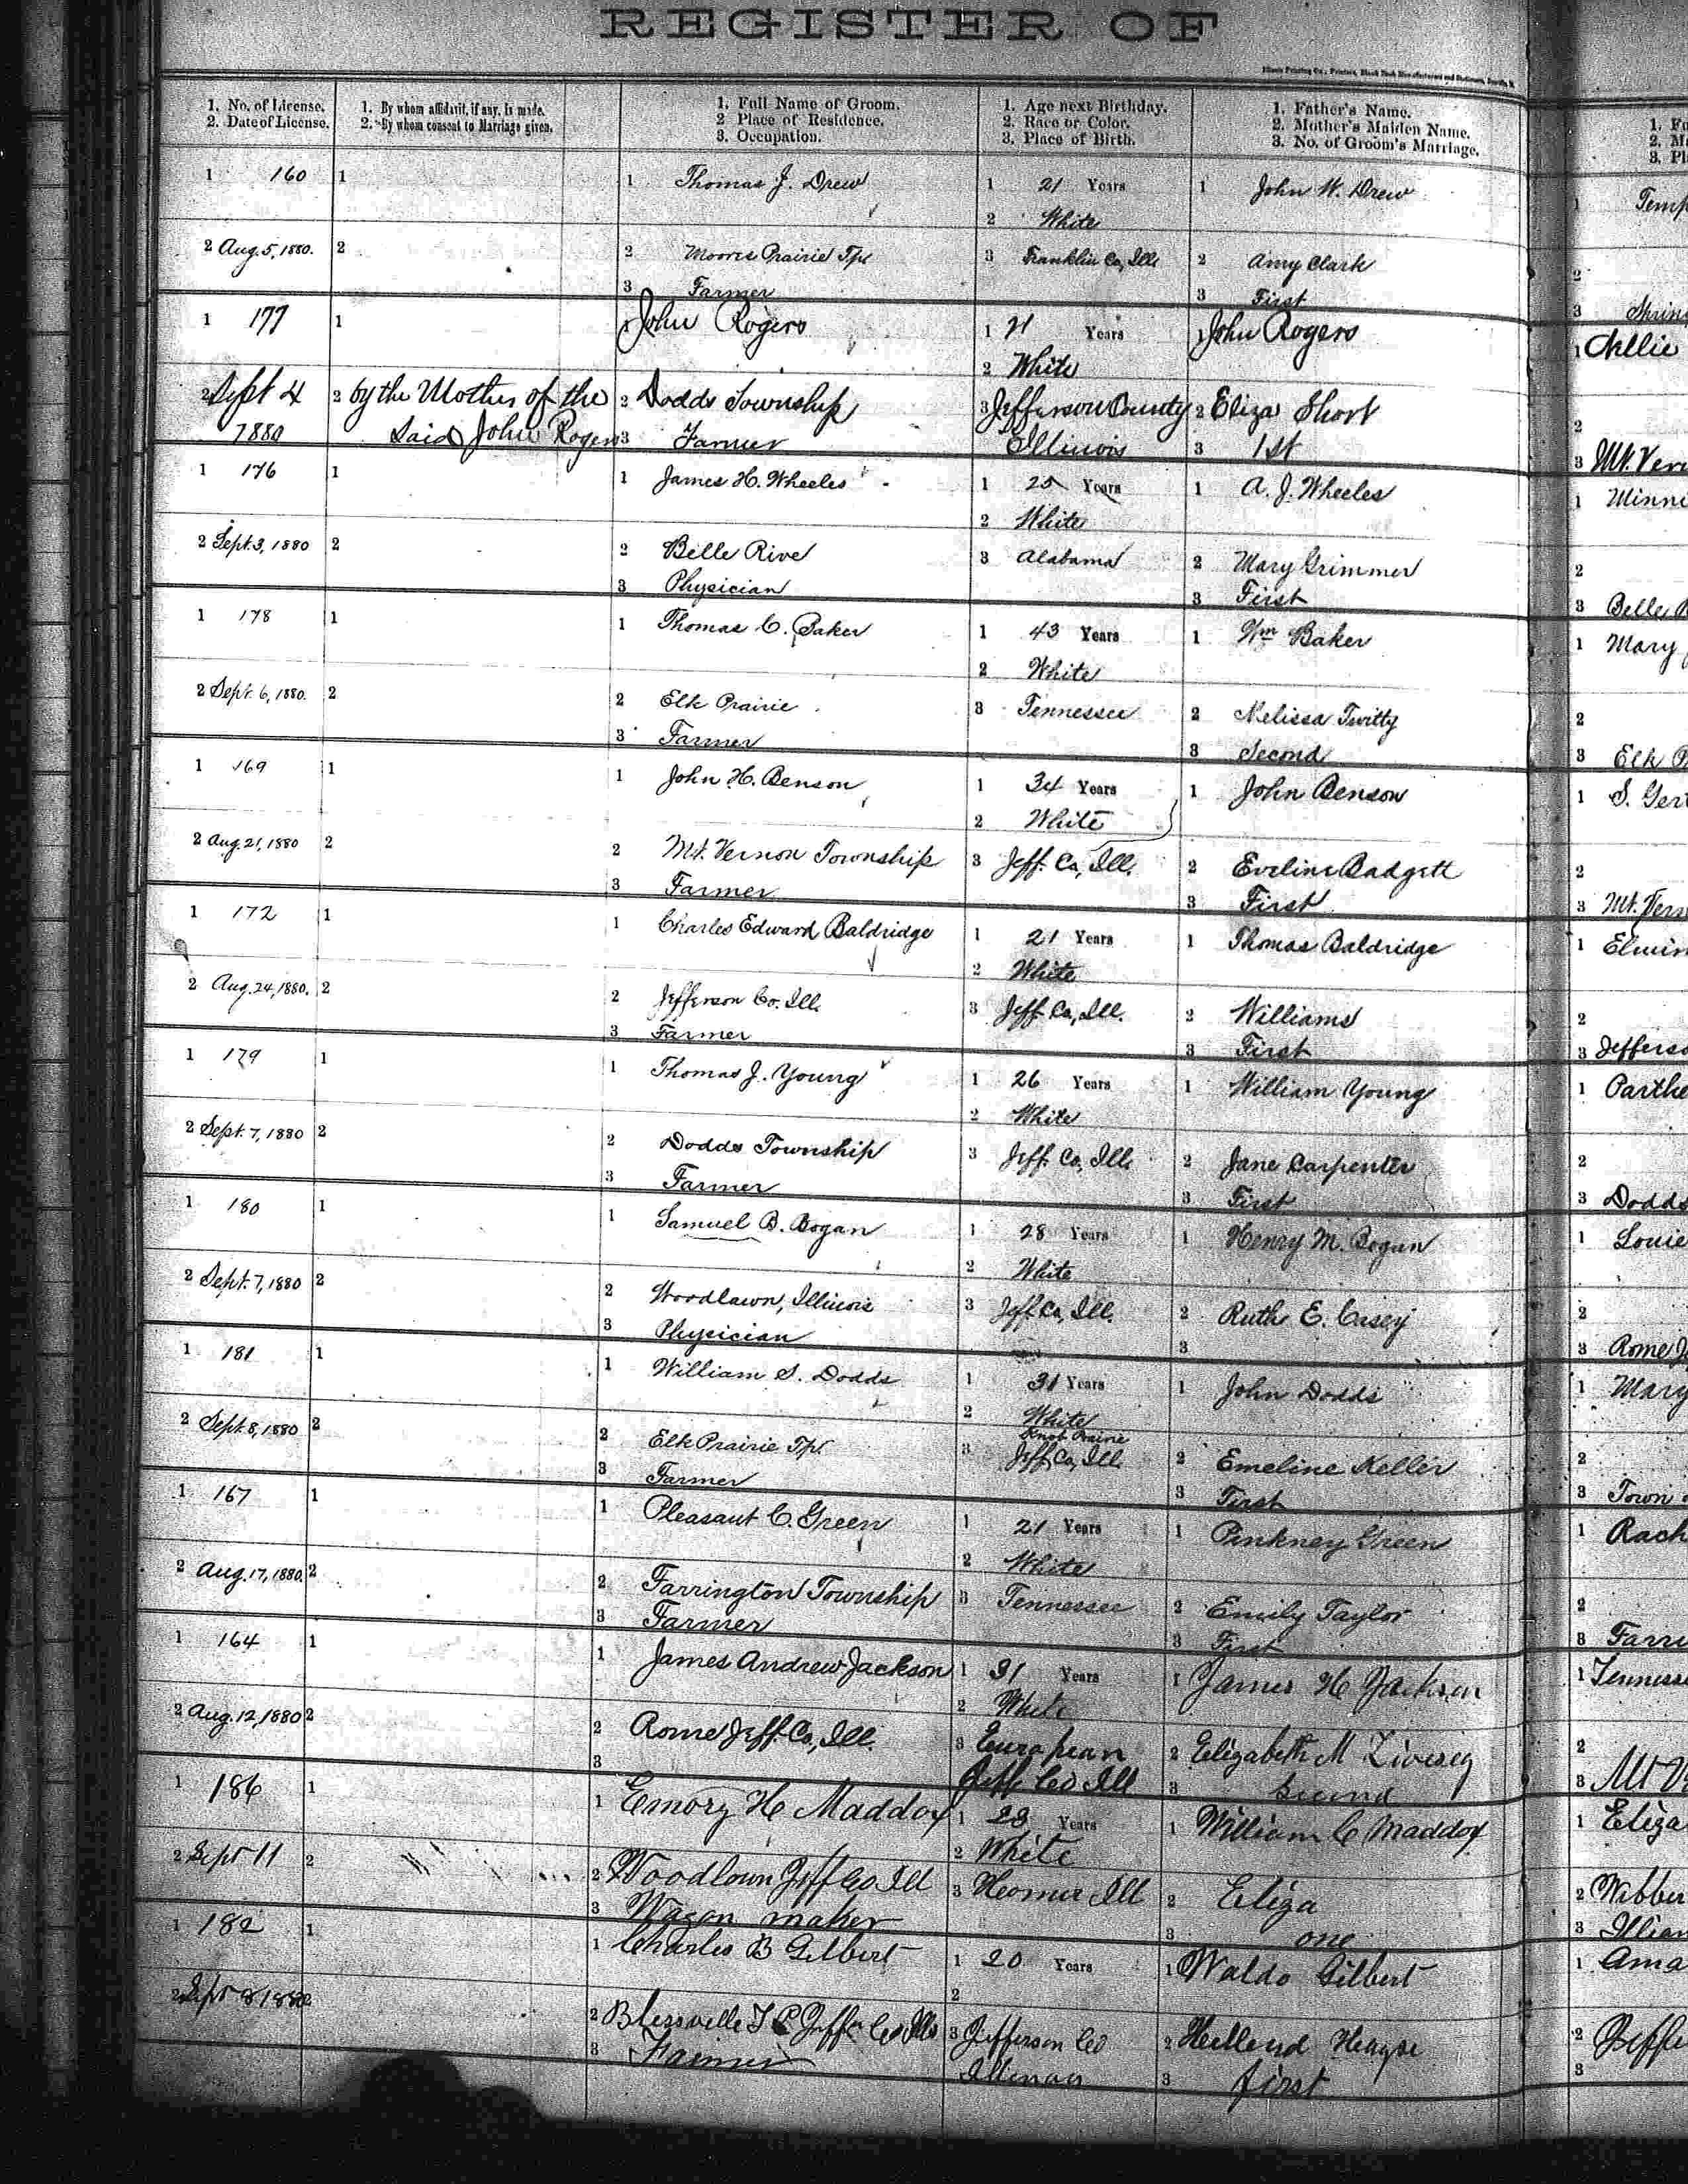 REGISTER OF
1. No. of License.
2. Date of License.
1. By whom affidavit, if any, is made.
2. By whom consent to Marriage given.
1. Full Name of Groom.
2 Place of Residence.
3. Occupation.
1. Age next Birthday.
2. Race or Color.
3. Place of Birth.
1. Father's Name.
2. Mother's Maiden Name.
3. No. of Groom's Marriage.
1 160 1 1 Thomas J. Drew 1 21 Years 1 John W. Drew
2 White
2 Aug. 5, 1880. 2 2 Moores Prairie Tp 3 Franklin Co, Ill 2 Amy Clark
3 Farmer 3 First
1 177 1 1 John Rogers 1 21 Years 1 John Rogers
2 White
2 Sept 4 2 by the Mother of the 2 Dodds Township 3 Jefferson County 2 Eliza Short
1880 Said John Rogers 3 Farmer Illinois 3 1st
1 176 1 1 James H. Wheeles 1 25 Years 1 A. J. Wheeles
2 White
2 Sept. 3, 1880 2 2 Belle Rive 3 Alabama 2 Mary Grimmer
3 Physician 3 First
1 178 1 1 Thomas C. Baker 1 43 Years 1 Wm Baker
2 White
2 Sept. 6, 1880. 2 2 Elk Prairie 3 Tennessee 2 Melissa Twitty
3 Farmer 3 Second
1 169 1 1 John H. Benson 1 34 Years 1 John Benson
2 White
2 Aug. 21, 1880 2 2 Mt. Vernon Township 3 Jeff. Co, Ill. 2 Eveline Badgett
3 Farmer 3 First
1 172 1 1 Charles Edward Baldridge 1 21 Years 1 Thomas Baldridge
2 White
2 Aug. 24, 1880. 2 2 Jefferson Co. Ill. 3 Jeff. Co, Ill. 2 Williams
3 Farmer 3 First
1 179 1 1 Thomas J. Young 1 26 Years 1 William Young
2 White
2 Sept. 7, 1880 2 2 Dodds Township 3 Jeff. Co, Ill. 2 Jane Carpenter
3 Farmer 3 First
1 180 1 1 Samuel B. Bogan 1 28 Years 1 Henry M. Bogan
2 White
2 Sept. 7, 1880 2 2 Woodlawn, Illinois 3 Jeff. Co, Ill. 2 Ruth E. Casey
3 Physician 3
1 181 1 1 William S. Dodds 1 31 Years 1 John Dodds
2 White
Knob Prairie
2 Sept. 8, 1880 2 2 Elk Prairie Tp 3 Jeff. Co, Ill. 2 Emeline Keller
3 Farmer 3 First
1 167 1 1 Pleasant C. Green 1 21 Years 1 Pinkney Green
2 White
2 Aug. 17, 1880. 2 2 Farrington Township 3 Tennessee 2 Emily Taylor
3 Farmer 3 First
1 164 1 1 James Andrew Jackson 1 31 Years 1 James H Jackson
2 White
2 Aug. 12, 1880 2 2 Rome Jeff. Co, Ill. 3 European 2 Elizabeth M Livesey
3 Jeff Co Ill 3 Second
1 186 1 1 Emory H Maddox 1 23 Years 1 William C Maddox
2 White
2 Sept 11 2 2 Woodlawn Jeff Co Ill 3 Ill 2 Eliza
3 Wagon maker 3 one
1 182 1 1 Charles B Gilbert 1 20 Years 1 Waldo Gilbert
2
2 Sept 8 1880 2 2 Blissville T P Jeff Co Ills 3 Jefferson Co 2
3 Farmer Illinois 3 first